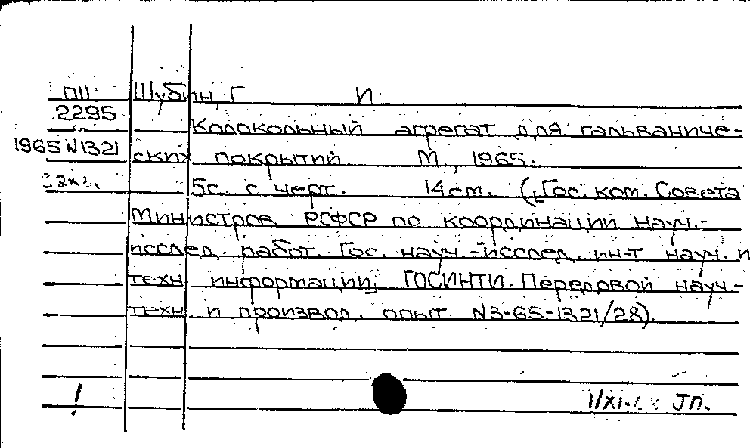 ПII Шубин, Г И
2295
Колокольный агрегат для гальваниче-
1965 N1321 ских покрытий М., 1965.
2экз. 5с. с черт. 14 cm. (Гос. ком. Совета
Министров РСФСР по координации науч.-
исслед. работ. Гос. науч.-исслед. ин-т науч. и
техн. информации; ГОСИНТИ. Передовой науч.-
техн. и производ. опыт N3-65-1321/28).
! ЛП.